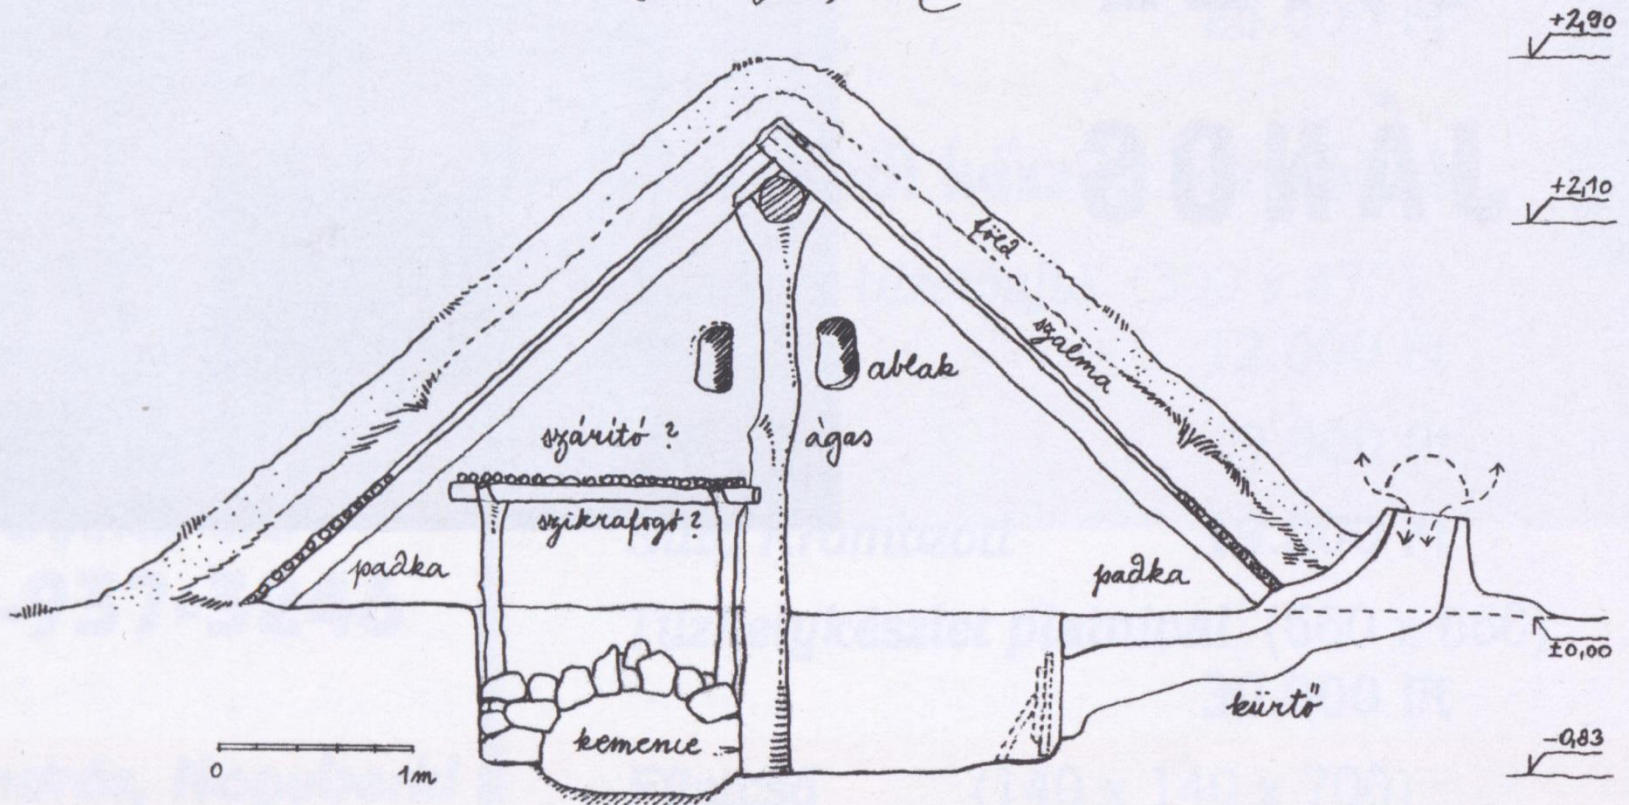 +2,90
+2,10
föld
szalma
ablak
szárító ?
ágas
szikrafogó ?
padka
padka
±0,00
kürtő
kemence
-0,83
0
1m